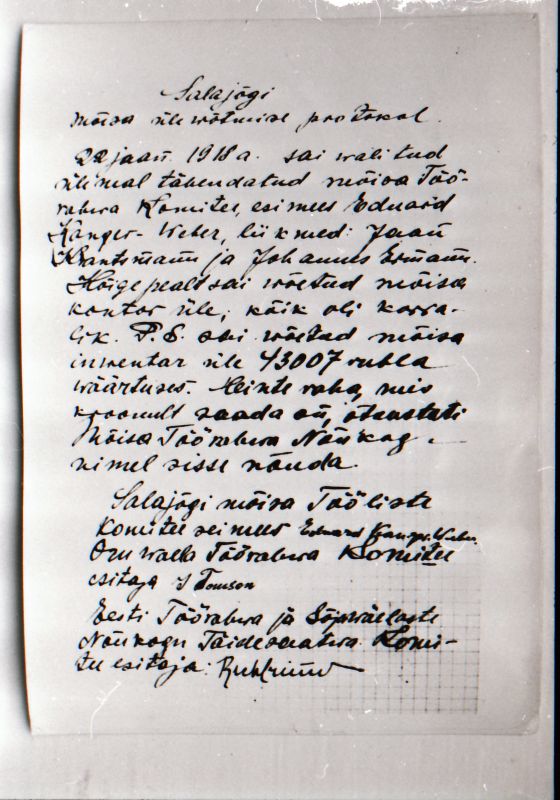 Salajõgi
mõisa üle wõtmise protokol.
22 jaan. 1918 a. sai walitud
ülimal tähendatud mõisa Töö-
rahwa Komitee, esimees Eduard
Kanger-Weber, liikmed: Jaan
Krantsmann ja Johannes Ermann.
Kõige pealt sai wõetud mõisa
kontor üle, kõik oli korra-
lik. P.S. sai wõetud mõisa
inwentar üle 43007 rubla
wäärtuses. Heinte raha, mis
kroonult saada on, otsustati
Mõisa Töörahwa Nõukog.
nimel sisse nõuda.
Salajõgi mõisa Tööliste
Komitee seimees Eduard Kanger-Weber.
Oru walla Töörahwa Komitee
esitaja J Tomson
Eesti Töörahwa ja Sõjawäelaste
Nõukogu Täidesaatwa Komi-
tee esitaja: